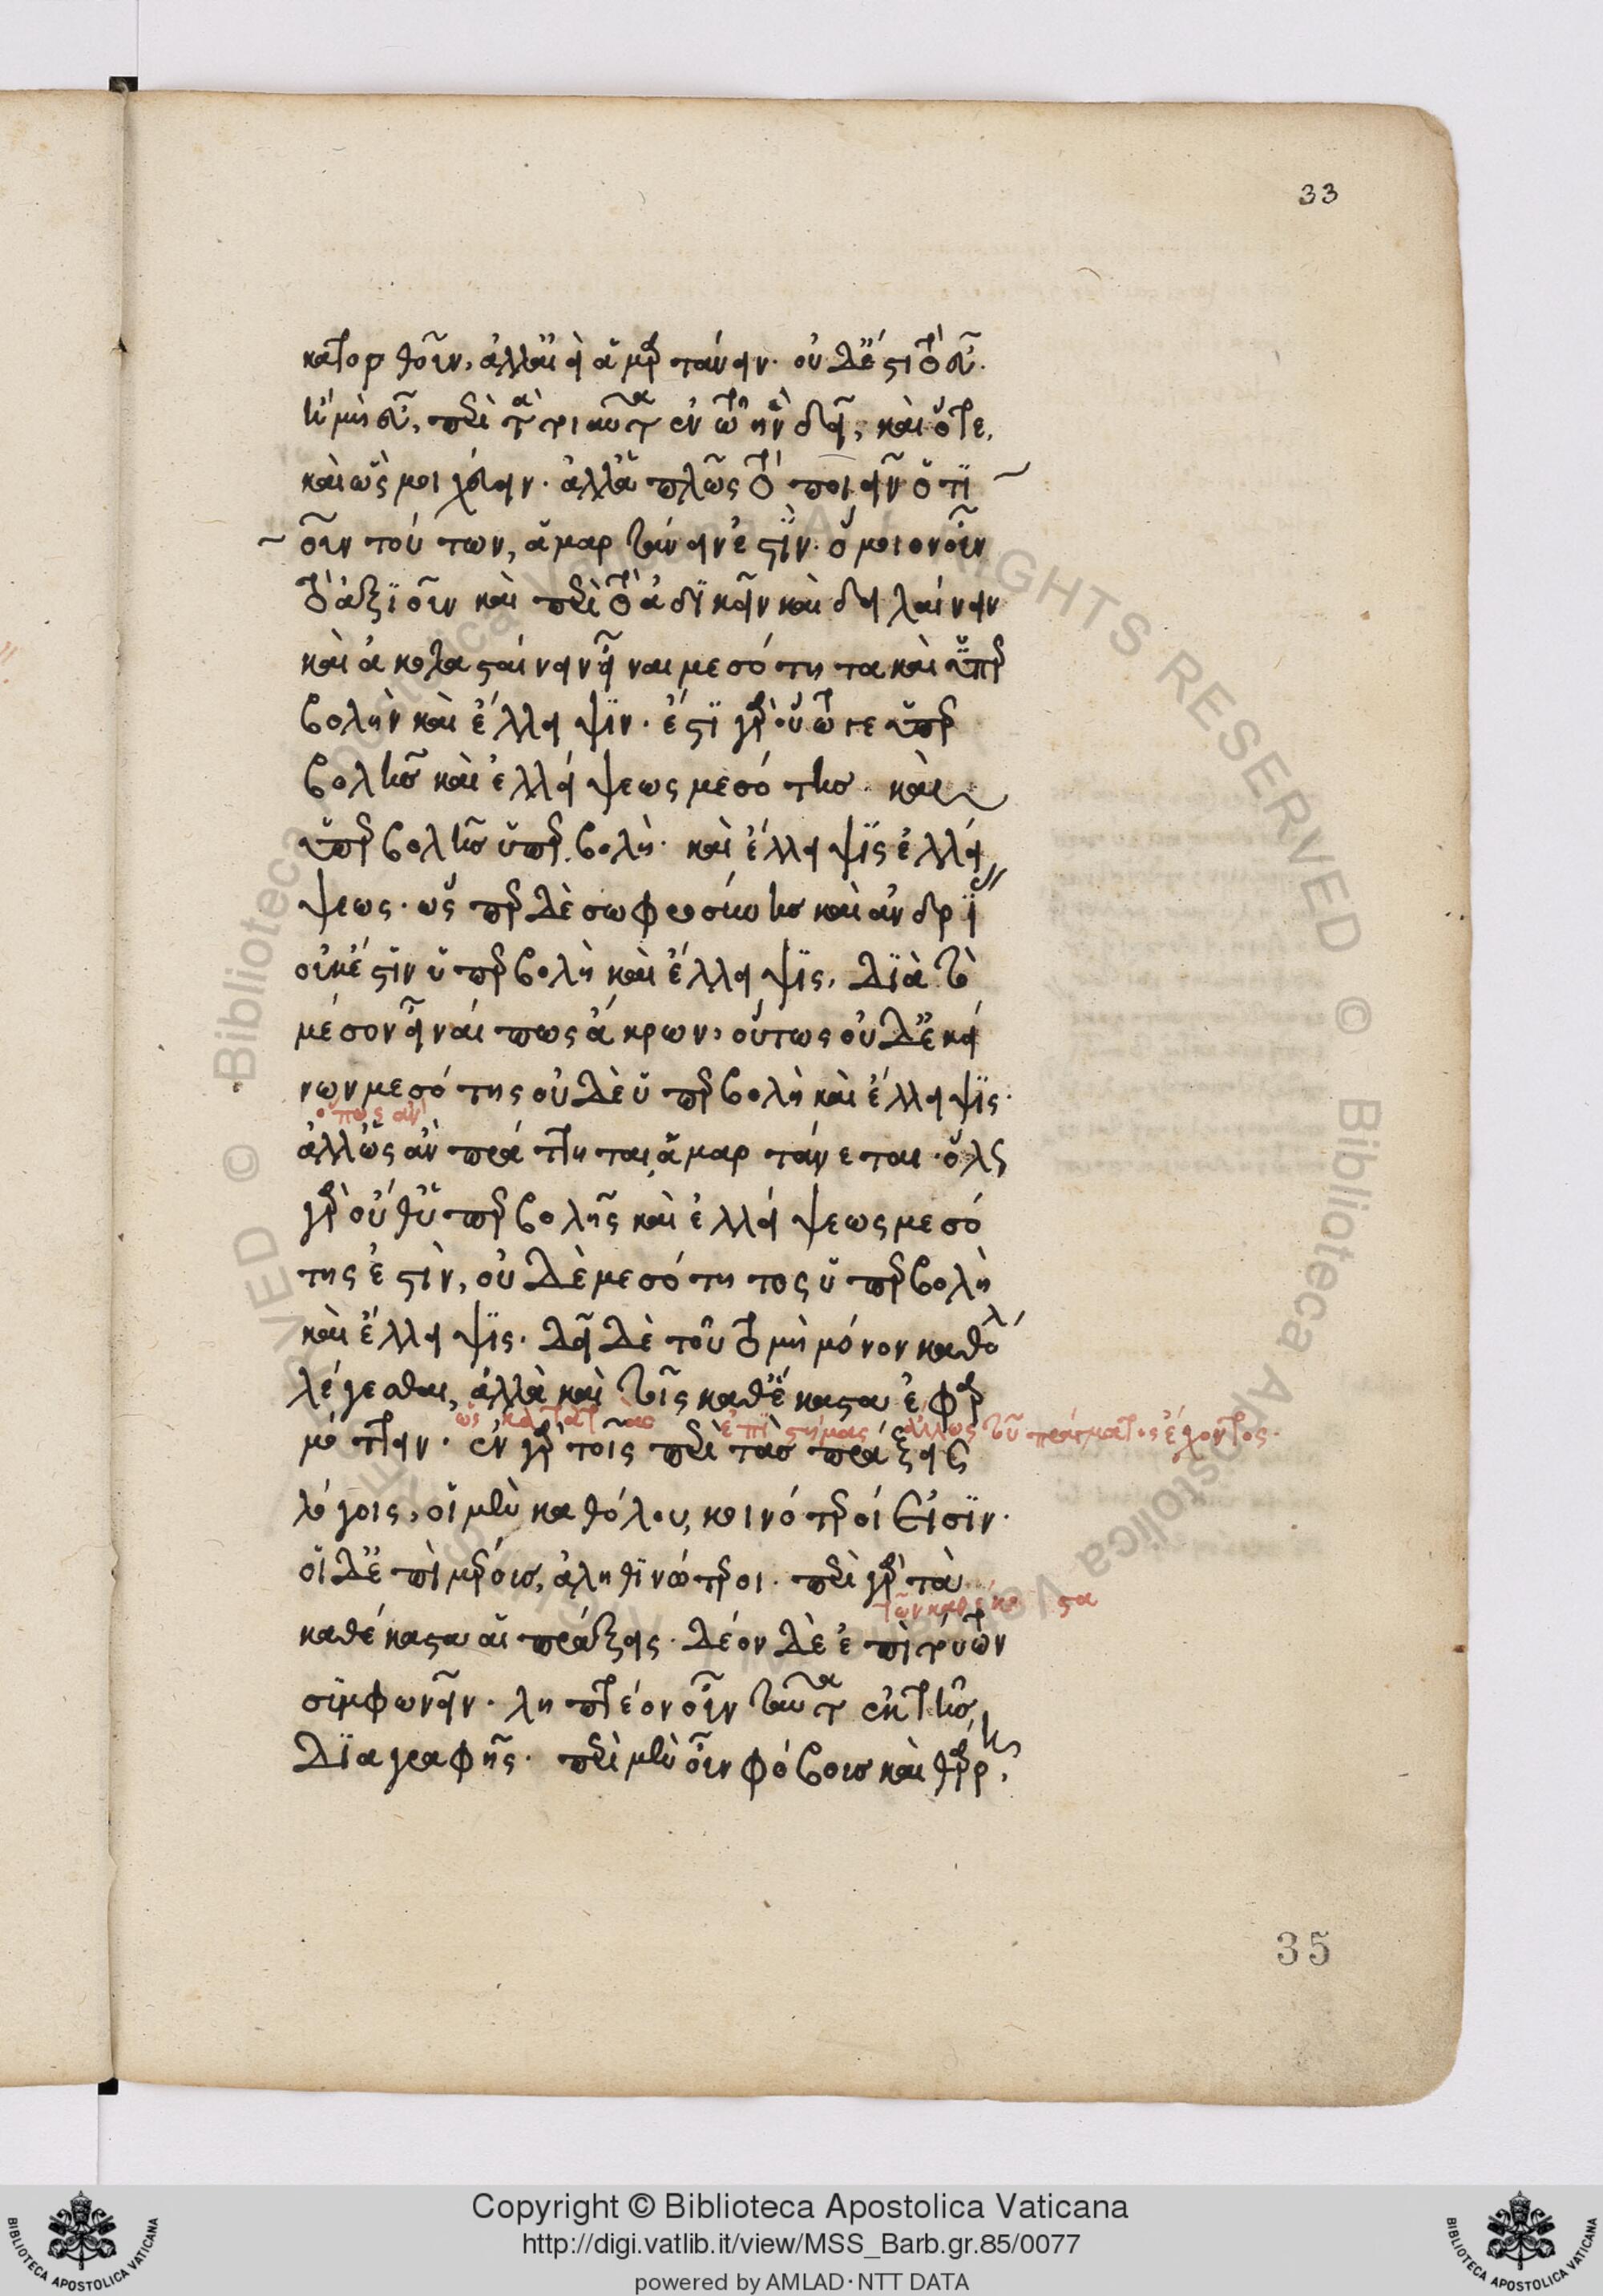 33
κατορθοῦν, ἀλλ' ἀεὶ ἁμαρτάνειν. οὐδ' ἔστι τὸ εὖ
ἢ μὴ εὖ, περὶ τὰ τοιαῦτα ἐν τῷ ἣν δεῖ, καὶ ὅτε,
καὶ ὡς μοιχεύειν. ἀλλ' ἁπλῶς τὸ ποιεῖν ὁτι
οῦν τούτων, ἁμαρτάνειν ἐστίν. ὅμοιον οὖν
τὸ ἀξιοῦν καὶ περὶ τὸ ἀδικεῖν καὶ δειλαίνειν
καὶ ἀκολασταίνειν εἶναι μεσότητα καὶ ὑπερ
βολὴν καὶ ἔλλειψιν. ἔσται γὰρ οὕτω γε ὑπερ
βολῆς καὶ ἐλλείψεως μεσότης. καὶ
ὑπερβολῆς ὑπερβολή. καὶ ἔλλειψις ἐλλεί
ψεως. ὥσπερ δὲ σωφροσύνης καὶ ἀνδρεί
ας
οὐκ ἔστιν ὑπερβολὴ καὶ ἔλλειψις, διὰ τὸ
μέσον εἶναί πως ἄκρων, οὕτως οὐδ' ἐκεί
νων μεσότης οὐδὲ ὑπερβολὴ καὶ ἔλλειψις.
ὅπως ἂν
ἀλλ' ὡς ἂν πράττηται ἁμαρτάνεται. ὅλως
γὰρ οὔθ' ὑπερβολῆς καὶ ἐλλείψεως μεσό
της ἐστὶν, οὐδὲ μεσότητος ὑπερβολὴ
καὶ ἔλλειψις. δεῖ δὲ τοῦτο μὴ μόνον καθόλου
λέγεσθαι, ἀλλὰ καὶ τοῖς καθέκαστα ἐφαρ
μόττειν. ἐν γὰρ τοῖς περὶ τὰς πράξεις
ἐπιστήμας ἄλλως τοῦ πράγματος ἔχοντος.
λόγοις, οἱ μὲν καθόλου, κοινότεροί εἰσιν.
οἱ δ' ἐπὶ μέρους, ἀληθινώτεροι. περὶ γὰρ τὰ
τῶν καθέκαστα
καθέκαστα αἱ πράξεις. δέον δὲ ἐπὶ τούτων
συμφωνεῖν. ληπτέον οὖν ταῦτα ἐκ τῆς
διαγραφῆς. περὶ μὲν οὖν φόβους καὶ θάρρη,
35
Copyright © Biblioteca Apostolica Vaticana
http://digi.vatlib.it/view/MSS_Barb.gr.85/0077
powered by AMLAD·NTT DATA